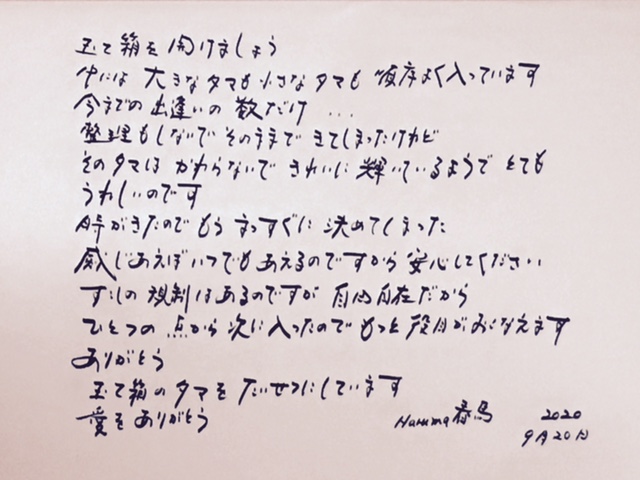 玉て箱を開けましょう
中には 大きなタマも小さなタマも 順序よく入っています
今までの出逢いの数だけ ...
整理もしないで そのままで きてしまったけれど
そのタマは かわらないで きれいに 輝いているようで とても
うれしいのです
時がきたので もう まっすぐに 決めてしまった
感じあえば いつでも あえるのですから 安心してください
すこしの規制はあるのですが 自由自在だから
ひとつの 点から 次に入ったので もっと 役目がおこなえます
ありがとう
玉て箱のタマを だいせつにしています
愛を ありがとう
Haruma春馬 2020
9月20日